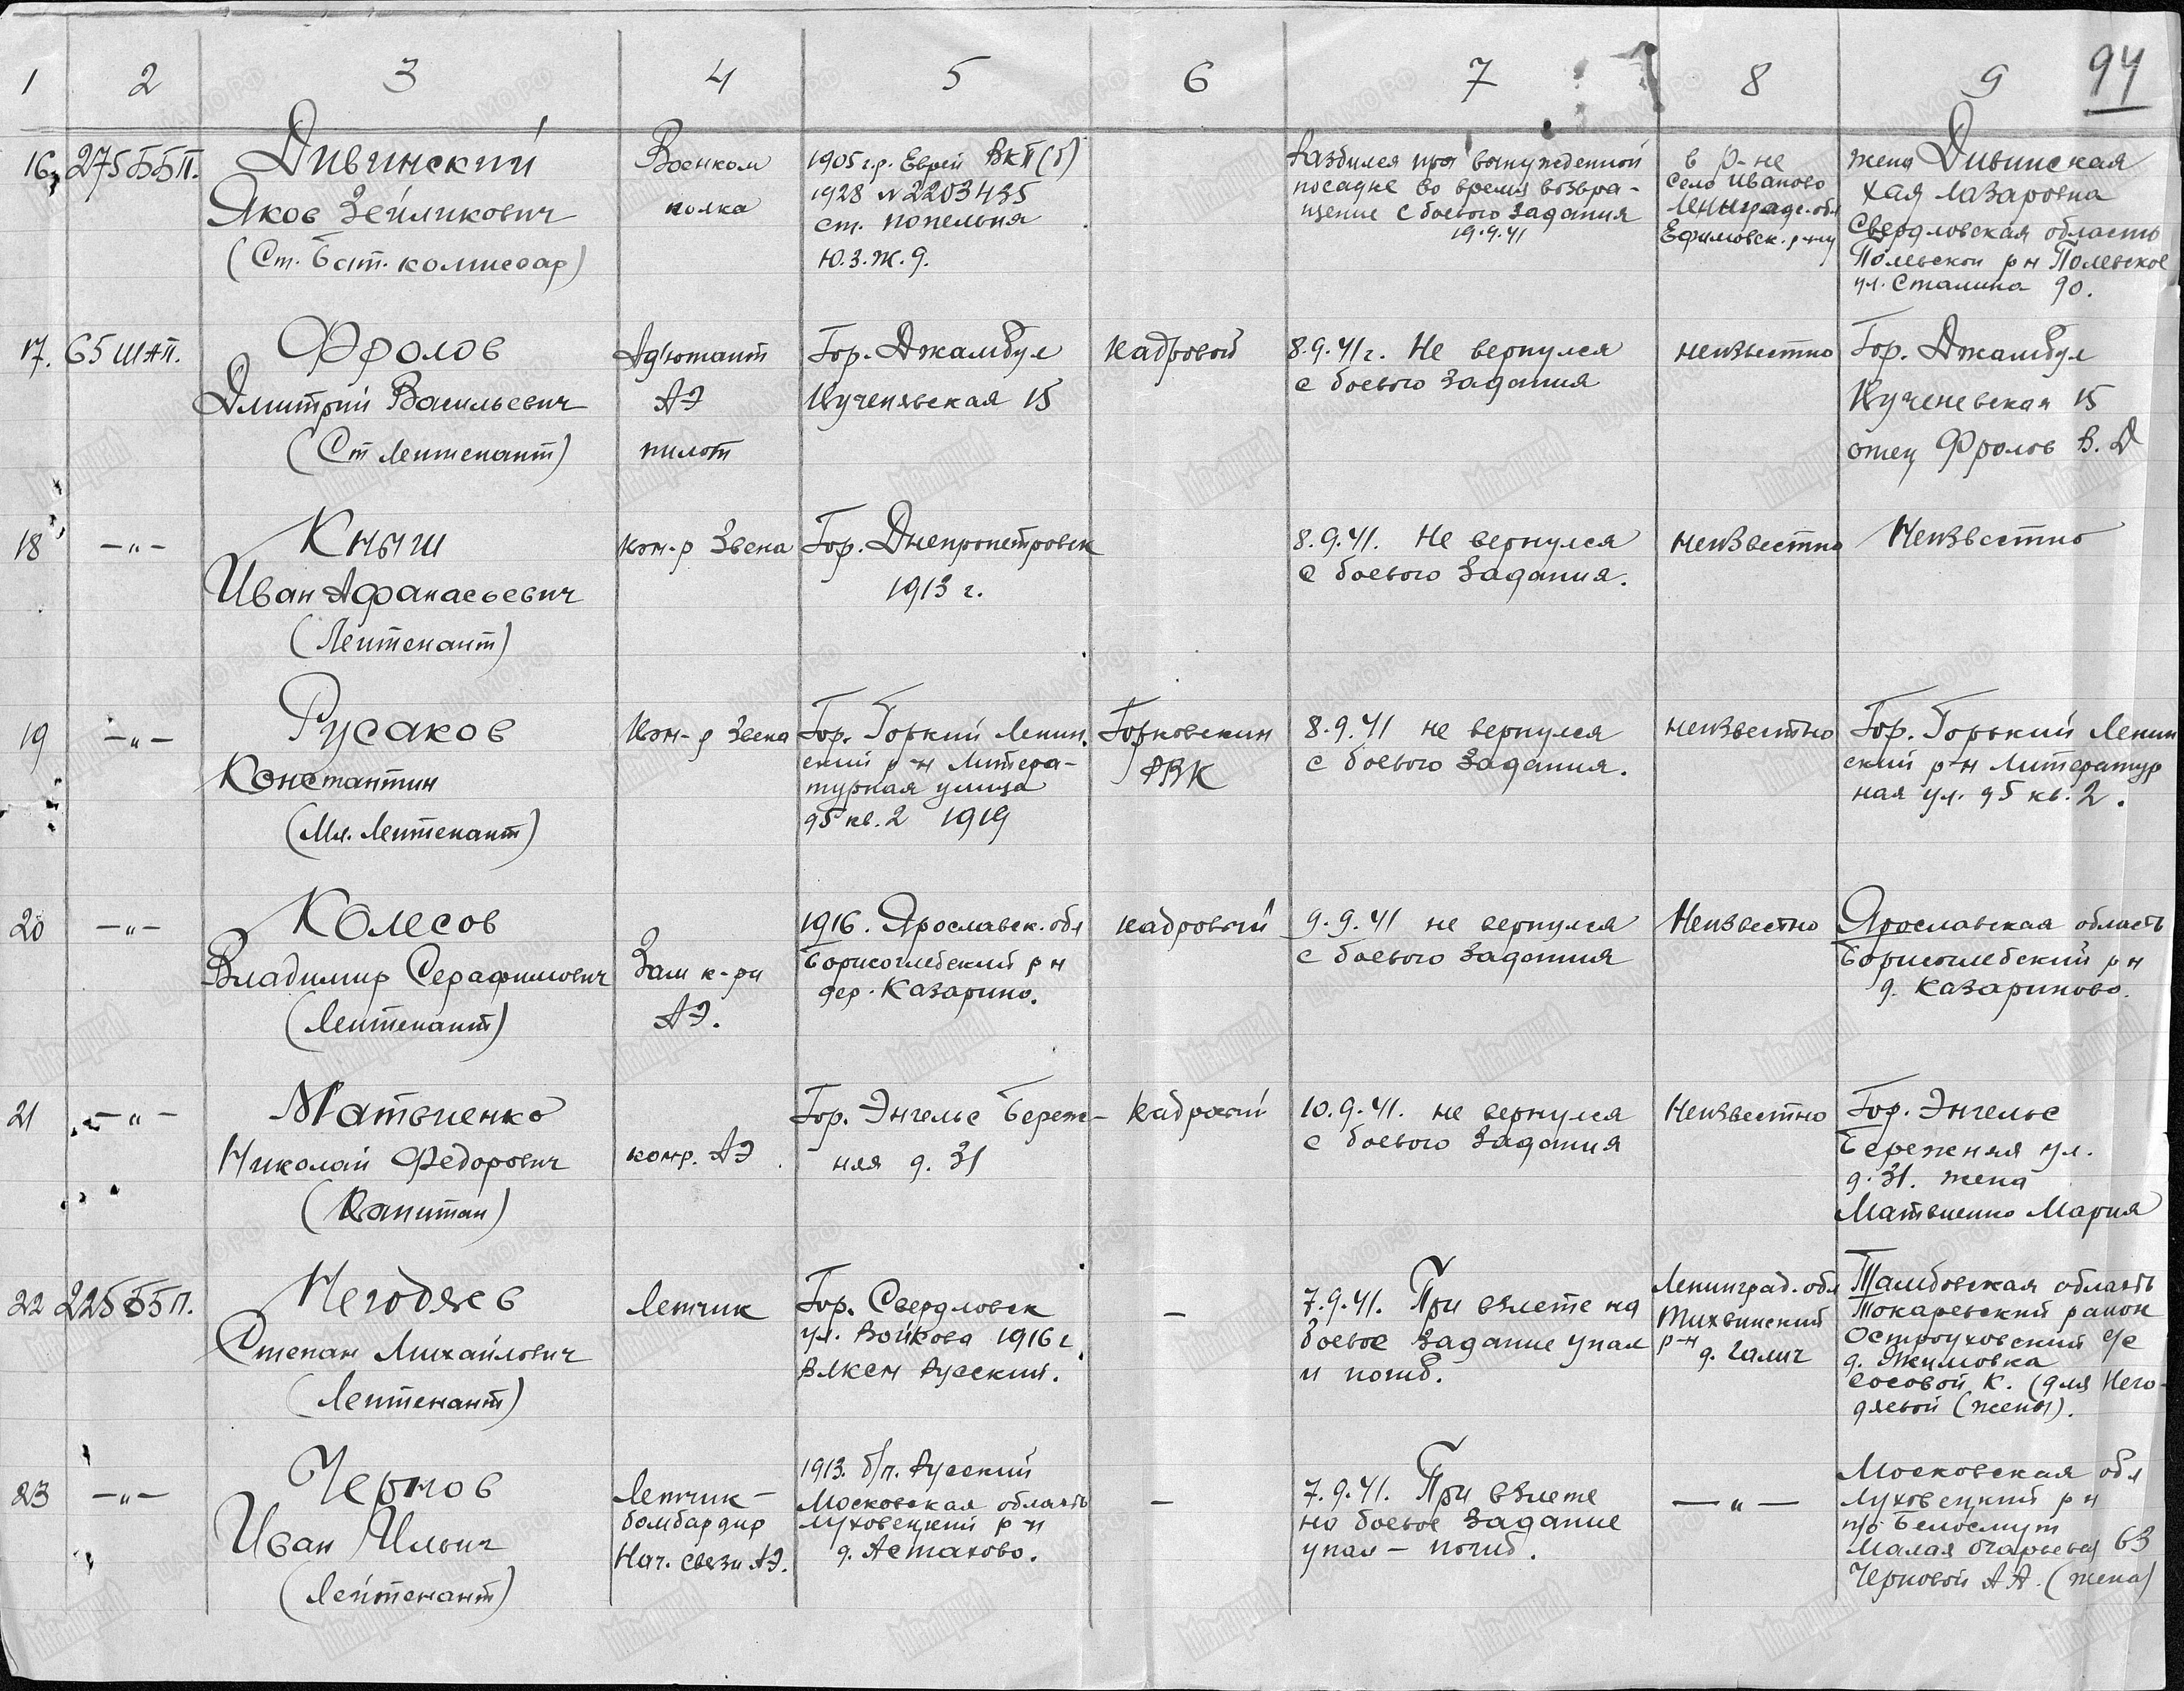 94
1 2 3 4 5 6 7 8 9
16. 275 ББП.
Дивинский
Яков Зейликович
(Ст. Бат. комиссар)
Военком
полка
1905 г.р. Еврей ВКП(б)
1928 №2203435
ст. Попельня
Ю.З.Ж.д.
Разбился при вынужденной
посадке во время возвра-
щение с боевого задания
19.9.41
в р-не
село Иваново
Ленинградс. обл
Ефимовск. р-н
жена Дивинская
Хая Лазаровна
Свердловская область
Полевской рн Полевское
ул. Сталина 90.
17. 65 ШАП.
Фролов
Дмитрий Васильевич
(Ст Лейтенант)
Адъютант
АЭ
пилот
Гор. Джамбул
Кученявская 15
Кадровой
8.9.41г. Не вернулся
с боевого задания
неизвестно
Гор. Джамбул
Кученевская 15
отец Фролов В.Д
18 —"—
Кныш
Иван Афанасьевич
(Лейтенант)
Ком-р Звена
Гор. Днепропетровск
1913 г.
8.9.41. Не вернулся
с боевого задания.
неизвестно
Неизвестно
19 —"—
Русаков
Константин
(Мл. Лейтенант)
Ком-р Звена
Гор. Горкий Ленин.
ский р-н Литера-
турная улица
95 кв. 2 1919
Горковский
РВК
8.9.41 не вернулся
с боевого задания.
неизвестно
Гор. Горький Ленин
ский р-н Литератур
ная ул. 95 кв. 2.
20 —"—
Колесов
Владимир Серафимович
(Лейтенант)
Зам к-ра
АЭ.
1916. Ярославск. обл
Борисоглебский рн
дер. Казарино.
кадровый
9.9.41 не вернулся
с боевого задания
Неизвестно
Ярославская область
Борисоглебский рн
д. Казариново.
21 —"—
Матвиенко
Николай Федорович
(Капитан)
комр. АЭ
Гор. Энгельс Береж-
няя д. 31
кадровый
10.9.41. не вернулся
с боевого задания
Неизвестно
Гор. Энгельс
Бережняя ул.
д. 31. жена
Матвиенко Мария
22 225 ББП.
Негодяев
Степан Михайлович
(Лейтенант)
Летчик
Гор. Свердловск
ул. Войкова 1916 г.
ВЛКСМ Русский.
—
7.9.41. При взлете на
боевое задание упал
и погиб.
Ленинград. обл
Тихвинский
р-н
д. Галич
Тамбовская область
Токаревский район
Остроуховский с/с
д. Жимовка
Сосовой К. (для Него-
дяевой (жены).
23 —"—
Чернов
Иван Ильич
(Лейтенант)
Летчик-
бомбардир
Нач. связи АЭ.
1913. б/п. Русский
Московская область
Луховецкий р-н
д. Астахово.
—
7.9.41. При взлете
на боевое задание
упал — погиб.
—"—
Московская обл
Луховецкий рн
п/о Белоомут
Малая Огарьева 63
Черновой А А. (жена)